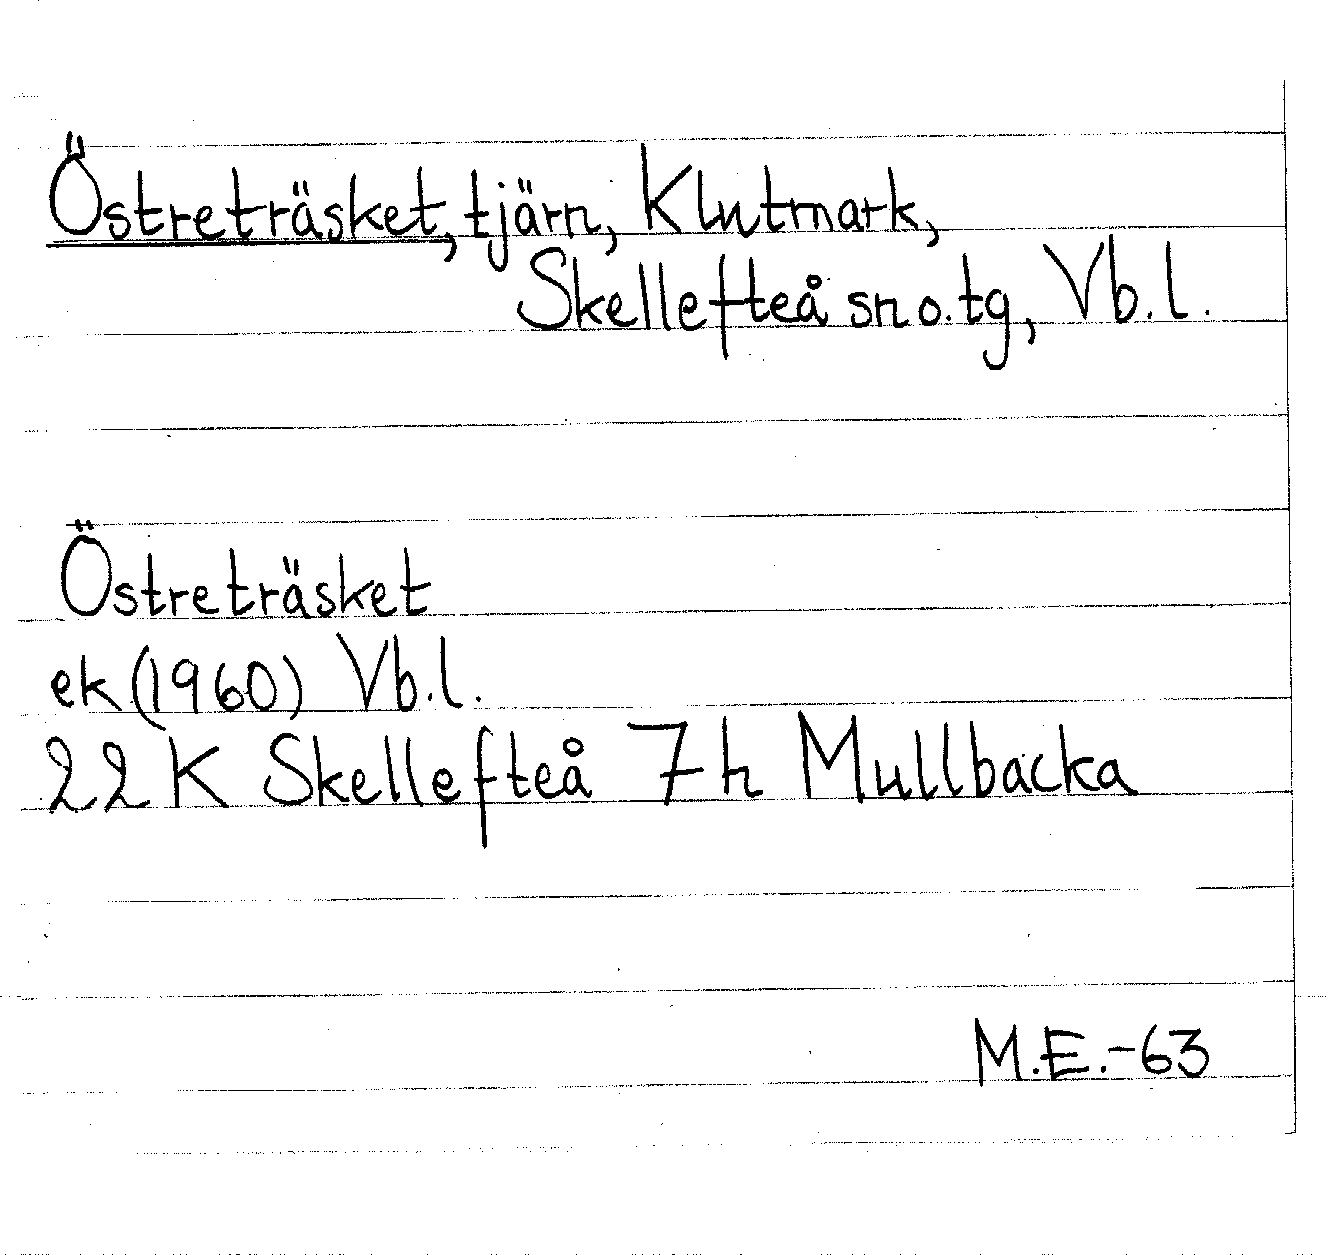 Östreträsket, tjärn, Klutmark,
Skellefteå sn o. tg, Vb. l.
Östreträsket
ek (1960) Vb. l.
22 K Skellefteå 7h Mullbacka
M.E.-63